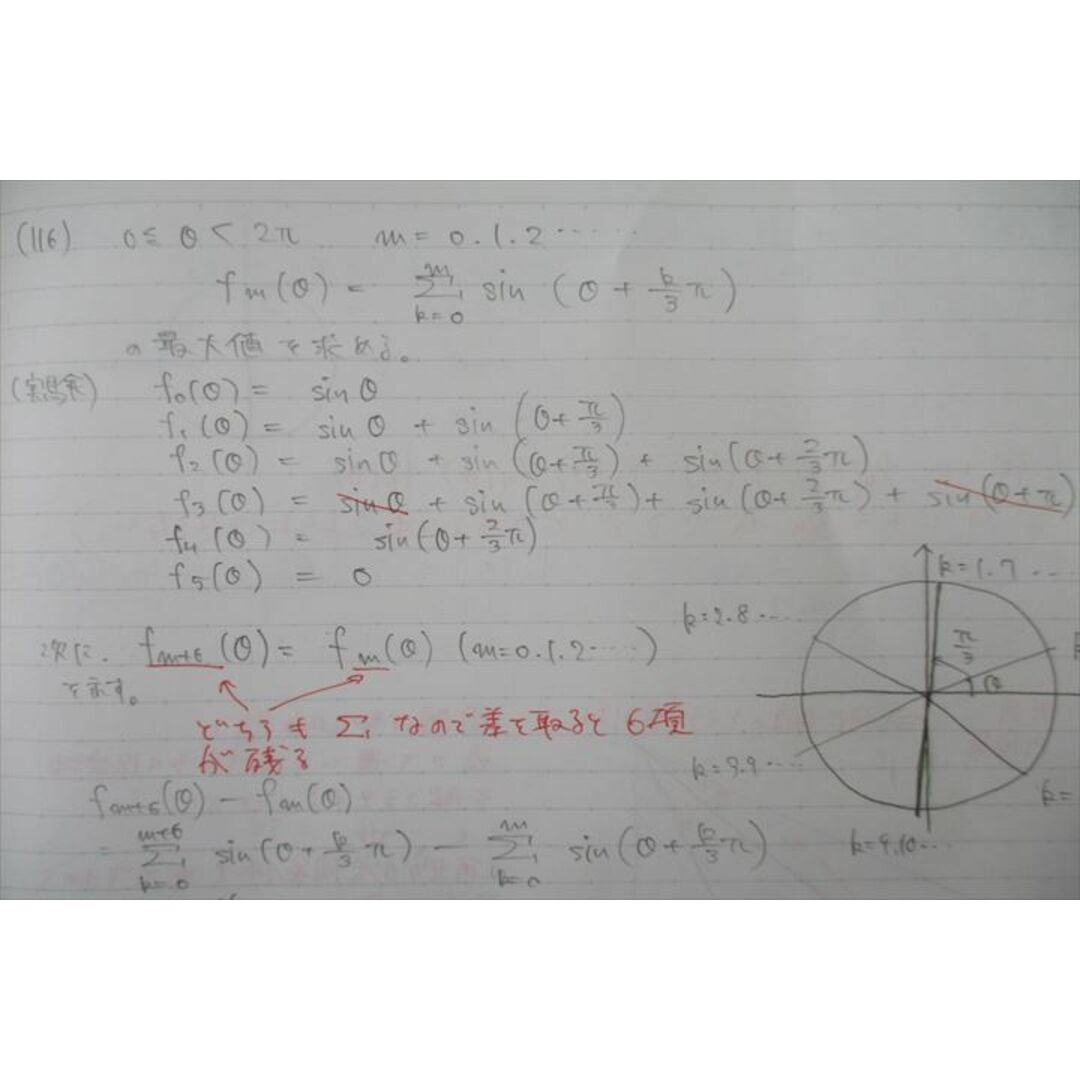 (116) 0≦θ<2π m=0.1.2‥‥‥
fm(θ)= Σ[k=0→m] sin(θ+k/3π)
の最大値を求める。
(実験) f0(θ)= sinθ
f1(θ)= sinθ + sin(θ+π/3)
f2(θ)= sinθ + sin(θ+π/3) + sin(θ+2/3π)
f3(θ)= sinθ + sin(θ+π/3) + sin(θ+2/3π) + sin(θ+π)
f4(θ)= sin(θ+2/3π)
f5(θ)= 0
k=1.7‥
k=2.8‥‥
π/3
θ
次に. fm+6(θ)= fm(θ) (m=0.1.2‥‥)
を示す。
どちらも Σ なので差を取ると 6項
が残る
k=3.9‥‥
fm+6(θ)-fm(θ)
k=
= Σ[k=0→m+6] sin(θ+k/3π) - Σ[k=0→m] sin(θ+k/3π)
k=4.10‥